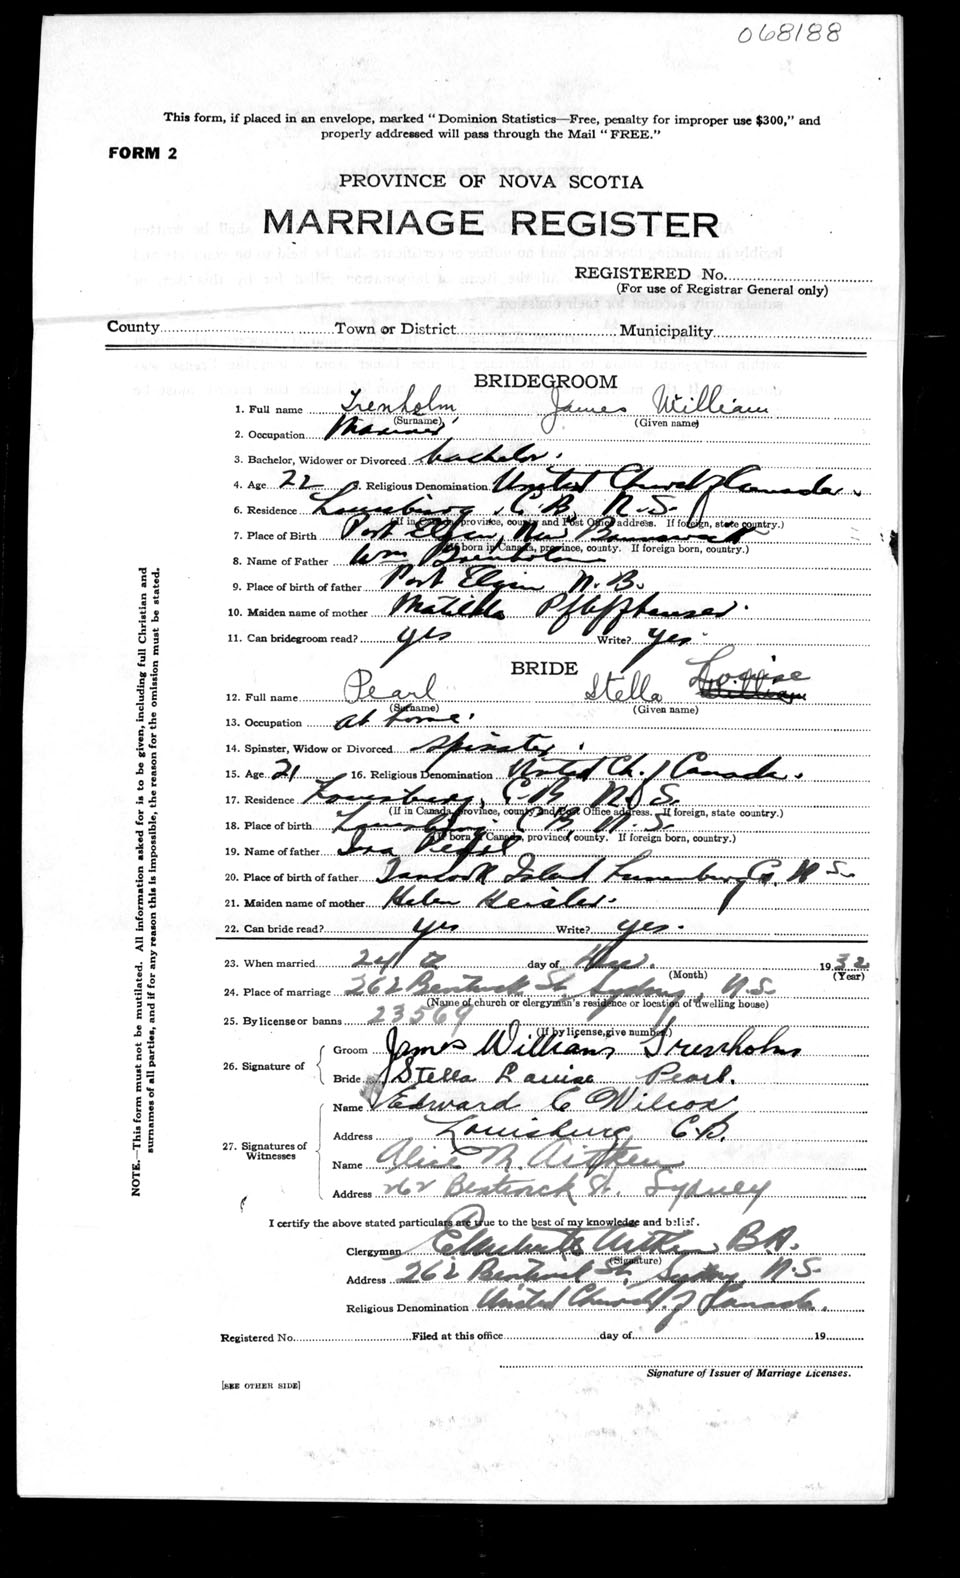 068188
This form, if placed in an envelope, marked "Dominion Statistics—Free, penalty for improper use $300," and
properly addressed will pass through the Mail "FREE."
FORM 2
PROVINCE OF NOVA SCOTIA
MARRIAGE REGISTER
REGISTERED No.
(For use of Registrar General only)
County Town or District Municipality
BRIDEGROOM
1. Full name Trenholm James William
(Surname) (Given name)
2. Occupation Mariner
3. Bachelor, Widower or Divorced bachelor.
4. Age 22 5. Religious Denomination United Church of Canada.
6. Residence Louisburg, C.B. N.S.
(If in Canada, province, county and Post Office address. If foreign, state country.)
7. Place of Birth Port Elgin, New Brunswick
(If born in Canada, province, county. If foreign born, country.)
8. Name of Father Wm Trenholm
9. Place of birth of father Port Elgin N.B.
10. Maiden name of mother Matilda
11. Can bridegroom read? yes Write? yes
BRIDE
Louise
12. Full name Pearl Stella William
(Surname) (Given name)
13. Occupation at home
14. Spinster, Widow or Divorced spinster.
15. Age 21 16. Religious Denomination United Ch. of Canada.
17. Residence Louisburg, C.B. N.S.
(If in Canada, province, county and Post Office address. If foreign, state country.)
18. Place of birth Louisburg C.B. N.S.
(If born in Canada, province, county. If foreign born, country.)
19. Name of father Ira Pearl
20. Place of birth of father Tancook Island Lunenburg Co. N.S.
21. Maiden name of mother Helen Heisler.
22. Can bride read? yes Write? yes.
23. When married 24 day of Nov. 1932
(Month) (Year)
24. Place of marriage 262 Bentinck St. Sydney, N.S.
(Name of church or clergyman's residence or location of dwelling house)
25. By license or banns 23569
(If by license, give number.)
26. Signature of
Groom James William Trenholm
Bride Stella Louise Pearl.
27. Signatures of Witnesses
Name Edward C Wilcox
Address Louisburg C.B.
Name Alice M. Aitken
Address 262 Bentinck St. Sydney
I certify the above stated particulars are true to the best of my knowledge and belief.
Clergyman Aitken B.A.
(Signature)
Address 262 Bentinck St. Sydney, N.S.
Religious Denomination United Church of Canada.
Registered No. Filed at this office day of 19
Signature of Issuer of Marriage Licenses.
[SEE OTHER SIDE]
NOTE.—This form must not be mutilated. All information asked for is to be given, including full Christian and
surnames of all parties, and if for any reason this is impossible, the reason for the omission must be stated.